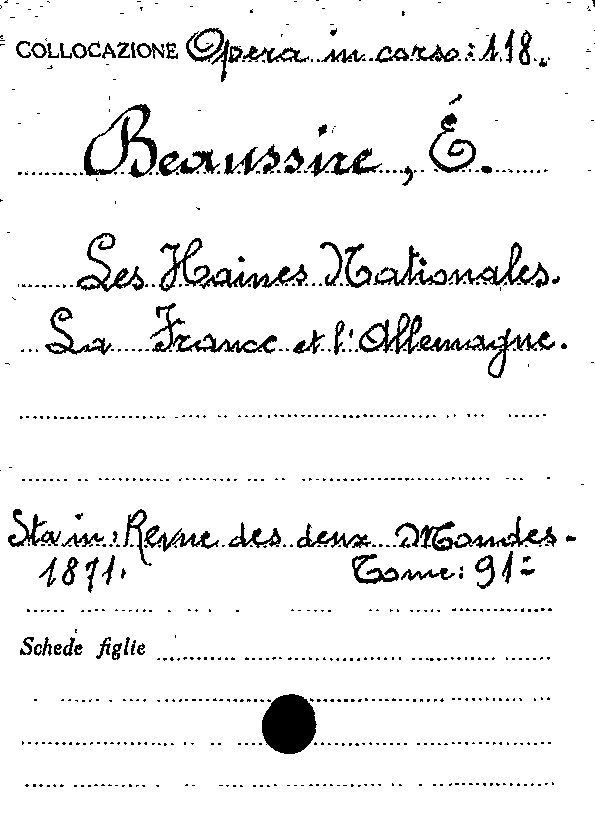 COLLOCAZIONE Opera in corso: 118.
Beaussire, É.
Les Haines Nationales.
La France et l'Allemagne.
Sta in: Revue des deux Mondes -
1871. Tome: 91=
Schede figlie